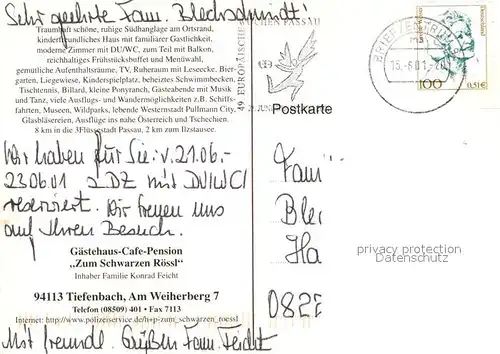 Sehr geehrte Fam. Blechschmidt!
Traumhaft schöne, ruhige Südhanglage am Ortsrand,
kinderfreundliches Haus mit familiärer Gastlichkeit,
moderne Zimmer mit DU/WC, zum Teil mit Balkon,
reichhaltiges Frühstücksbuffet und Menüwahl,
gemütliche Aufenthaltsräume, TV, Ruheraum mit Leseecke, Bier-
garten, Liegewiese, Kinderspielplatz, beheiztes Schwimmbecken,
Tischtennis, Billard, kleine Ponyranch, Gästeabende mit Musik
und Tanz, viele Ausflugs- und Wandermöglichkeiten z.B. Schiffs-
fahrten, Museen, Wildparks, lebende Westernstadt Pullman City,
Glasbläsereien, Ausflüge ins nahe Österreich und Tschechien.
8 km in die 3Flüssestadt Passau, 2 km zum Ilzstausee.
Wir haben für Sie v. 21.06.-
23.06.01 2 DZ mit DU/WC
reserviert. Wir freuen uns
auf Ihren Besuch.
Gästehaus-Cafe-Pension
„Zum Schwarzen Rössl"
Inhaber Familie Konrad Feicht
94113 Tiefenbach, Am Weiherberg 7
Telefon (08509) 401 • Fax 7113
Internet: http://www.polizeiservice.de/fi+p-zum_schwarzen_roessl
Mit freundl. Grüßen Fam. Feicht
49. EUROPÄISCHE
WOCHEN PASSAU
Postkarte
BRIEFZENTRUM
100
0,51€
Fami
Ble
Ha
privacy protection
082